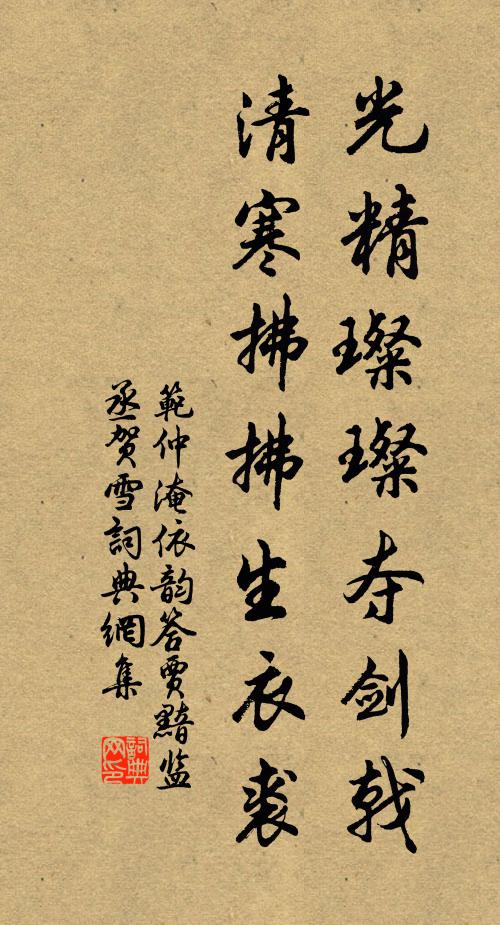 光精璨璨夺剑戟
清寒拂拂生衣裘
範仲淹依韵答贾黯监
丞贺雪詞典網集
詞典网印